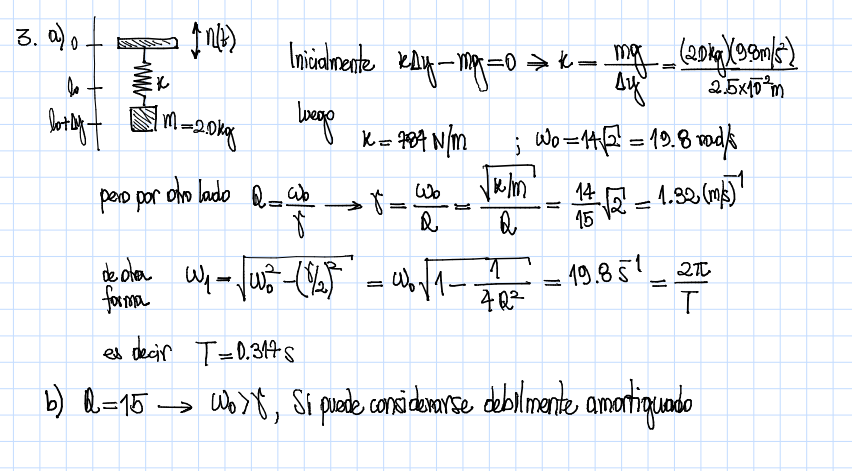 3. a) 0 η(t)
l₀ κ
l₀+Δy m=2.0kg
Inicialmente κΔy-mg=0 ⇒ κ = mg/Δy = (2.0kg)(9.8m/s²)/2.5x10⁻²m
luego
κ=784 N/m ; ω₀=14√2 = 19.8 rad/s
pero por otro lado Q=ω₀/γ → γ = ω₀/Q = √(κ/m)/Q = 14/15 √2 = 1.32 (m/s)⁻¹
de otra forma ω₁ = √(ω₀²-(γ/2)²) = ω₀√(1-1/4Q²) = 19.8 s⁻¹ = 2π/T
es decir T=0.317s
b) Q=15 → ω₀>γ, Si puede considerarse debilmente amortiguado